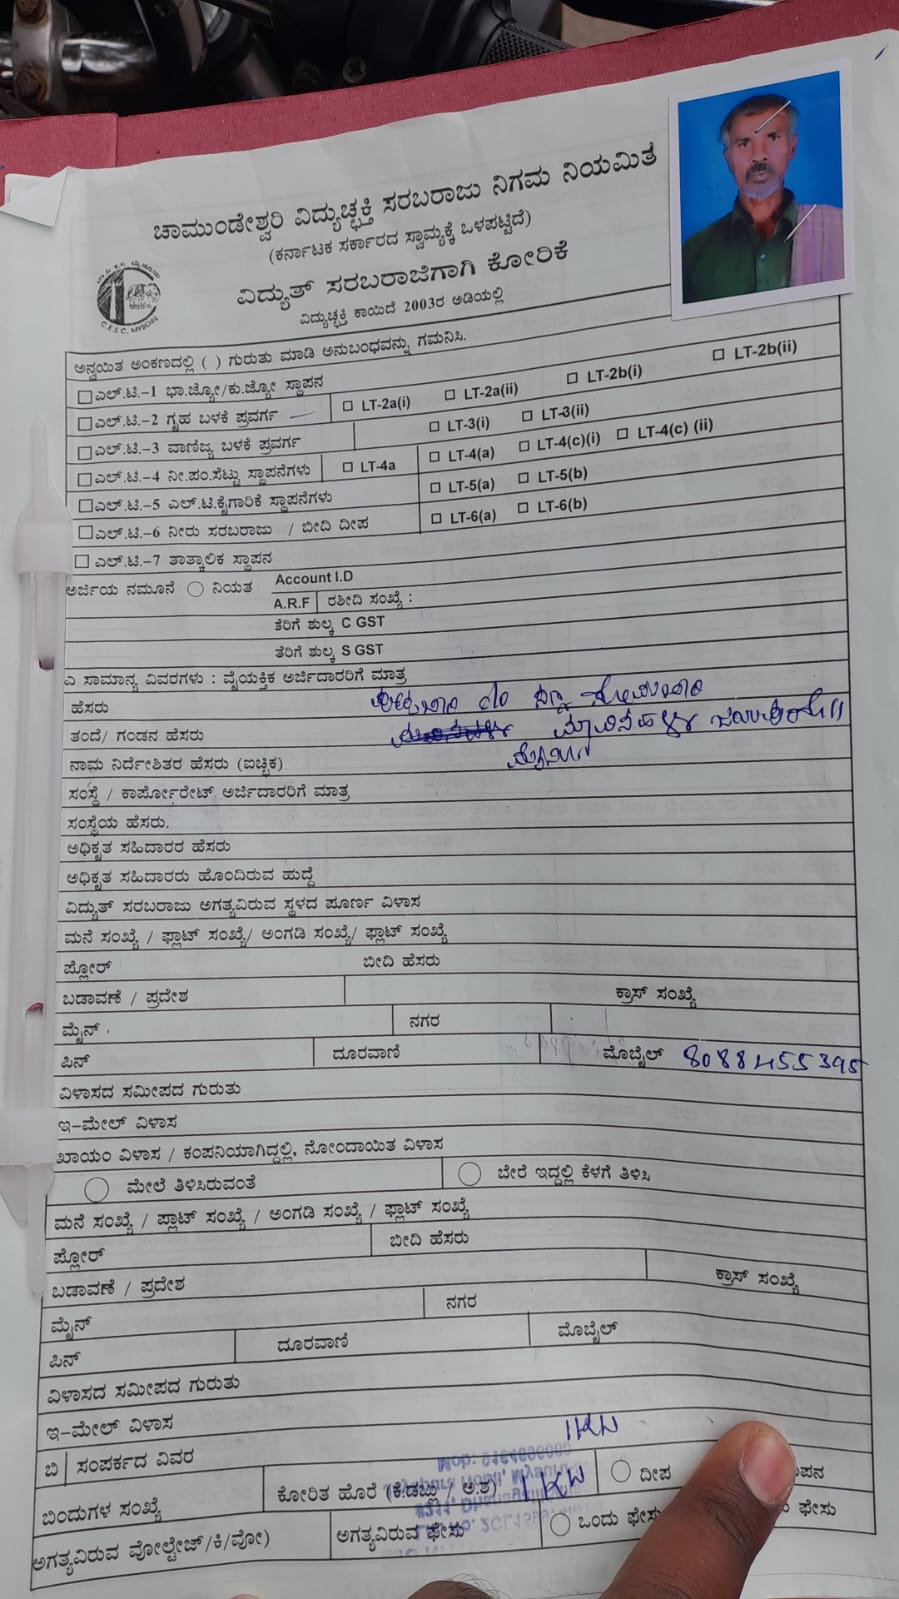 ಚಾಮುಂಡೇಶ್ವರಿ ವಿದ್ಯುಚ್ಛಕ್ತಿ ಸರಬರಾಜು ನಿಗಮ ನಿಯಮಿತ
(ಕರ್ನಾಟಕ ಸರ್ಕಾರದ ಸ್ವಾಮ್ಯಕ್ಕೆ ಒಳಪಟ್ಟಿದೆ)
ವಿದ್ಯುತ್ ಸರಬರಾಜಿಗಾಗಿ ಕೋರಿಕೆ
ವಿದ್ಯುಚ್ಛಕ್ತಿ ಕಾಯಿದೆ 2003ರ ಅಡಿಯಲ್ಲಿ
C.E.S.C. MYSORE
ಅನ್ವಯಿತ ಅಂಕಣದಲ್ಲಿ ( ) ಗುರುತು ಮಾಡಿ ಅನುಬಂಧವನ್ನು ಗಮನಿಸಿ.
ಎಲ್.ಟಿ.-1 ಭಾ.ಜ್ಯೋ/ಕು.ಜ್ಯೋ ಸ್ಥಾಪನ
ಎಲ್.ಟಿ.-2 ಗೃಹ ಬಳಕೆ ಪ್ರವರ್ಗ LT-2a(i) LT-2a(ii) LT-2b(i) LT-2b(ii)
ಎಲ್.ಟಿ.-3 ವಾಣಿಜ್ಯ ಬಳಕೆ ಪ್ರವರ್ಗ LT-3(i) LT-3(ii)
ಎಲ್.ಟಿ.-4 ನೀ.ಪಂ.ಸೆಟ್ಟು ಸ್ಥಾಪನೆಗಳು LT-4a LT-4(a) LT-4(c)(i) LT-4(c) (ii)
ಎಲ್.ಟಿ.-5 ಎಲ್.ಟಿ.ಕೈಗಾರಿಕೆ ಸ್ಥಾಪನೆಗಳು LT-5(a) LT-5(b)
ಎಲ್.ಟಿ.-6 ನೀರು ಸರಬರಾಜು / ಬೀದಿ ದೀಪ LT-6(a) LT-6(b)
ಎಲ್.ಟಿ.-7 ತಾತ್ಕಾಲಿಕ ಸ್ಥಾಪನ
ಅರ್ಜಿಯ ನಮೂನೆ ನಿಯತ Account I.D
A.R.F ರಶೀದಿ ಸಂಖ್ಯೆ :
ತೆರಿಗೆ ಶುಲ್ಕ C GST
ತೆರಿಗೆ ಶುಲ್ಕ S GST
ಎ ಸಾಮಾನ್ಯ ವಿವರಗಳು : ವೈಯಕ್ತಿಕ ಅರ್ಜಿದಾರರಿಗೆ ಮಾತ್ರ
ಹೆಸರು
ತಂದೆ/ ಗಂಡನ ಹೆಸರು
ನಾಮ ನಿರ್ದೇಶಿತರ ಹೆಸರು (ಐಚ್ಛಿಕ)
ಸಂಸ್ಥೆ / ಕಾರ್ಪೋರೇಟ್ ಅರ್ಜಿದಾರರಿಗೆ ಮಾತ್ರ
ಸಂಸ್ಥೆಯ ಹೆಸರು.
ಅಧಿಕೃತ ಸಹಿದಾರರ ಹೆಸರು
ಅಧಿಕೃತ ಸಹಿದಾರರು ಹೊಂದಿರುವ ಹುದ್ದೆ
ವಿದ್ಯುತ್ ಸರಬರಾಜು ಅಗತ್ಯವಿರುವ ಸ್ಥಳದ ಪೂರ್ಣ ವಿಳಾಸ
ಮನೆ ಸಂಖ್ಯೆ / ಫ್ಲಾಟ್ ಸಂಖ್ಯೆ/ ಅಂಗಡಿ ಸಂಖ್ಯೆ/ ಫ್ಲಾಟ್ ಸಂಖ್ಯೆ
ಪ್ಲೋರ್ ಬೀದಿ ಹೆಸರು
ಬಡಾವಣೆ / ಪ್ರದೇಶ ಕ್ರಾಸ್ ಸಂಖ್ಯೆ
ಮೈನ್ ನಗರ
ಪಿನ್ ದೂರವಾಣಿ ಮೊಬೈಲ್ 8088455395
ವಿಳಾಸದ ಸಮೀಪದ ಗುರುತು
ಇ-ಮೇಲ್ ವಿಳಾಸ
ಖಾಯಂ ವಿಳಾಸ / ಕಂಪನಿಯಾಗಿದ್ದಲ್ಲಿ, ನೋಂದಾಯಿತ ವಿಳಾಸ
ಮೇಲೆ ತಿಳಿಸಿರುವಂತೆ ಬೇರೆ ಇದ್ದಲ್ಲಿ ಕೆಳಗೆ ತಿಳಿಸಿ
ಮನೆ ಸಂಖ್ಯೆ / ಪ್ಲಾಟ್ ಸಂಖ್ಯೆ / ಅಂಗಡಿ ಸಂಖ್ಯೆ / ಫ್ಲಾಟ್ ಸಂಖ್ಯೆ
ಪ್ಲೋರ್ ಬೀದಿ ಹೆಸರು
ಬಡಾವಣೆ / ಪ್ರದೇಶ ಕ್ರಾಸ್ ಸಂಖ್ಯೆ
ಮೈನ್ ನಗರ
ಪಿನ್ ದೂರವಾಣಿ ಮೊಬೈಲ್
ವಿಳಾಸದ ಸಮೀಪದ ಗುರುತು
ಇ-ಮೇಲ್ ವಿಳಾಸ
ಬಿ ಸಂಪರ್ಕದ ವಿವರ 1KW
ಬಿಂದುಗಳ ಸಂಖ್ಯೆ ಕೋರಿತ ಹೊರೆ (ಕೆ.ಡಬ್ಲ್ಯು / ಅ.ಶ) 1 KW ದೀಪ
ಅಗತ್ಯವಿರುವ ವೋಲ್ಟೇಜ್/ಕಿ/ವೋ) ಅಗತ್ಯವಿರುವ ಫೇಸು ಒಂದು ಫೇಸು ಫೇಸು